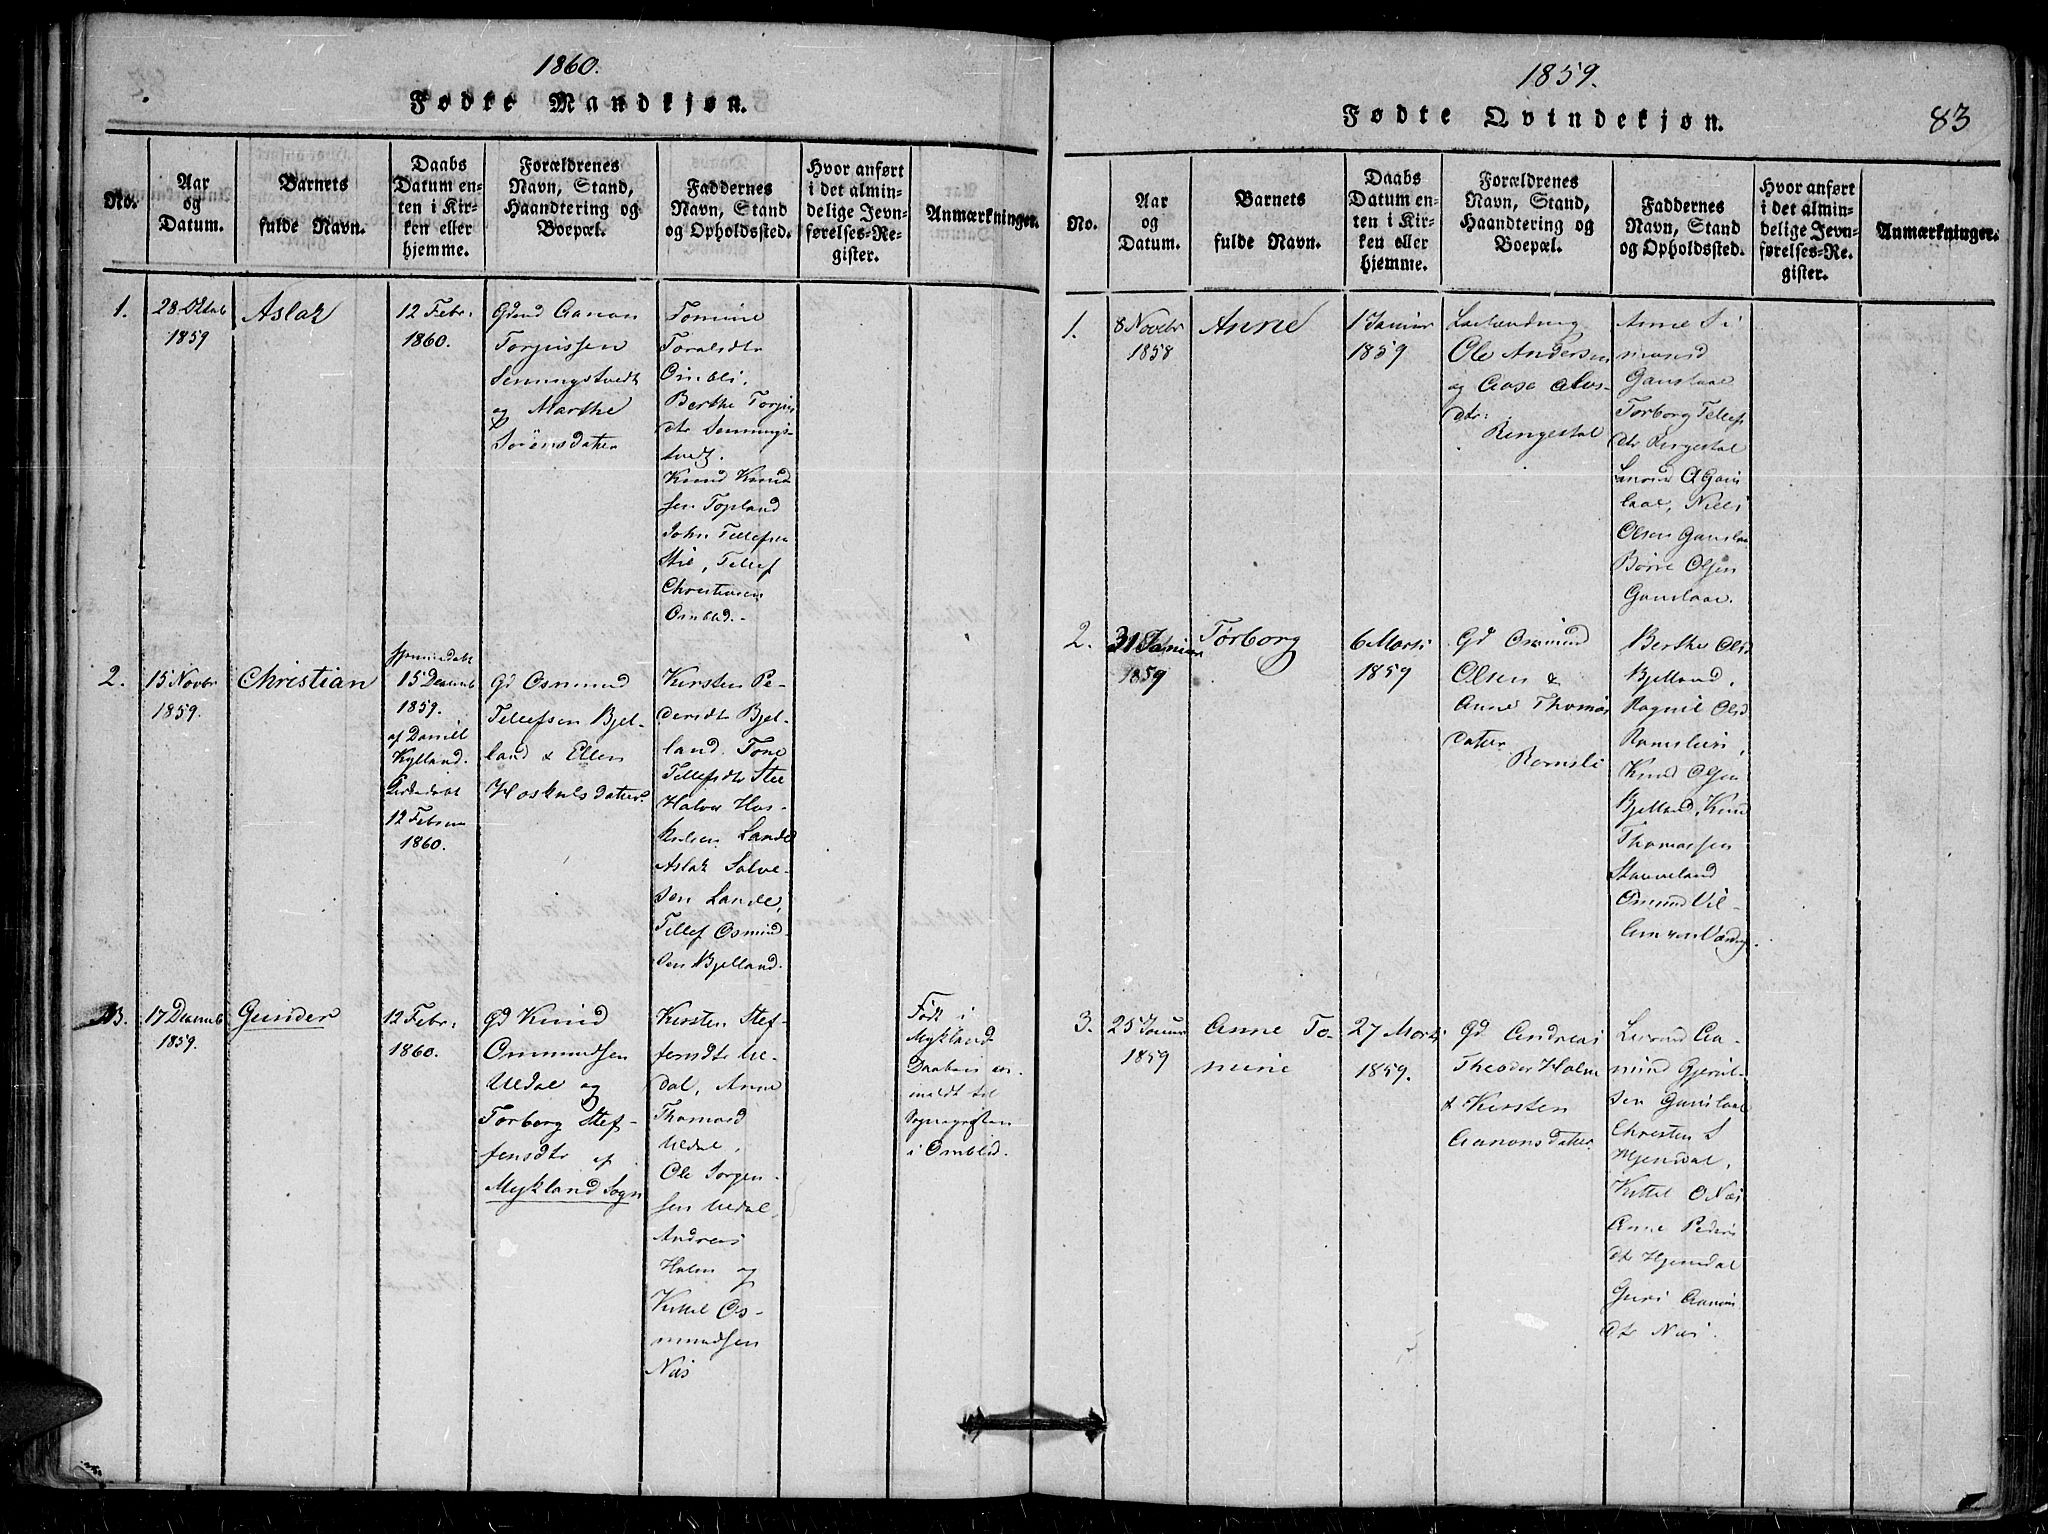 1860.
Fødte Mandkjøn.
No.
Aar
og
Datum.
Barnets
fulde Navn.
Daabs
Datum en-
ten i Kir-
ken eller
hjemme.
Forældrenes
Navn, Stand,
Haandtering og
Boepæl.
Faddernes
Navn, Stand
og Opholdssted.
Hvor anført
i det almin-
delige Jevn-
førelses-Re-
gister.
Anmærkninger.
1.
28 Oktob
1859
Aslak
12 Febr.
1860.
Gdmd Aanon
Torjussen
Senningstvedt
og Marthe
Sørensdatter
Tomine
Toralsdtr
Omblie,
Berthe Torjus
dtr Sennings-
tvedt.
Knud Knud
sen Topland
John Tellefsen
Stie, Tellef
Christensen
Omblid.
2.
15 Novbr
1859.
Christian
hjemmedøbt
15 Decemb
1859.
af Daniel
Kylland.
12 Febru
1860.
Gd Osmund
Tellefsen Bjel-
land & Ellen
Hoskuldsdatter
Kirsten Pe-
dersdtr Bjel-
land. Tone
Tellefsdtr Stie
Halvor Hos-
kulsen Lande
Aslak Salve-
sen Lande,
Tellef Osmund-
sen Bjelland.
3.
17 Decemb
1859.
Gunder
12 Febr.
1860.
Gd Knud
Ommundsen
Uedal og
Torborg Stef-
fensdtr af
Mykland Sogn
Kirsten Stef-
fensdtr Ue-
dal, Anne
Thomasd
Uedal,
Ole Jørgen-
sen Uedal,
Andreas
Holm og
Kittel Os-
mundsen
Næs
Født i
Mykland
Daaben an-
meldt til
Sognepresten
i Omblid.
1859.
Fødte Qvindekjøn.
83
No.
Aar
og
Datum.
Barnets
fulde Navn.
Daabs
Datum en-
ten i Kir-
ken eller
hjemme.
Forældrenes
Navn, Stand,
Haandtering og
Boepæl.
Faddernes
Navn, Stand
og Opholdssted.
Hvor anført
i det almin-
delige Jevn-
førelses-Re-
gister.
Anmærkninger.
1.
8 Novebr
1858
Anne
1 Januar
1859
Ole Andersen
og Aase Alvs-
dtr:
Ringestal
Anne Si
monsd
Gauslaae
Torborg Tellefs
dtr Ringestal
laae, Niels
Olsen Gauslaa
Børre Olsen
Gauslaae.
2.
31 Januar
1859
Torborg
6 Marts
1859
Gd Osmund
Olsen &
Anne Thomas
datter
Ramsli
Berthe Olsd
Bjelland,
Ragnil Olsd
Ramslien,
Knud Olsen
Bjelland, Knud
Thomassen
Staveland
Osmund Vil-
3.
25 Januar
1859
Anne To-
mine
27 Marts
1859.
Gd Andreas
Theodor Holm
& Kirsten
Aanonsdatter
mund Gjerul-
sen Gauslaae
Christen S
Hjemdal,
Kittel O Næs
Anne Peders
dtr Hjemdal
Guri Aanons
dtr Næs.